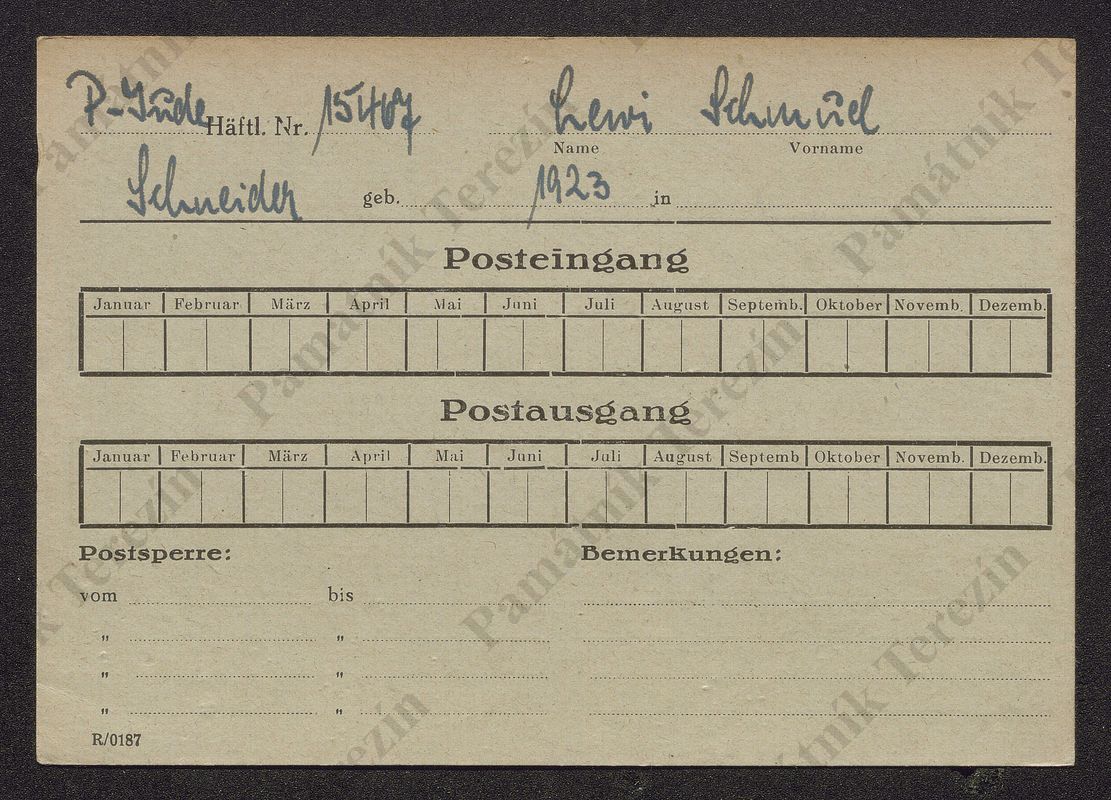 P-Jude Häftl. Nr. 15467 Lewi Schmūel
Name Vorname
Schneider geb. 1923 in
Posteingang
Januar Februar März April Mai Juni Juli August Septemb. Oktober Novemb. Dezemb.
Postausgang
Januar Februar März April Mai Juni Juli August Septemb Oktober Novemb. Dezemb.
Postsperre: Bemerkungen:
vom bis
" "
" "
" "
R/0187
Památník Terezín